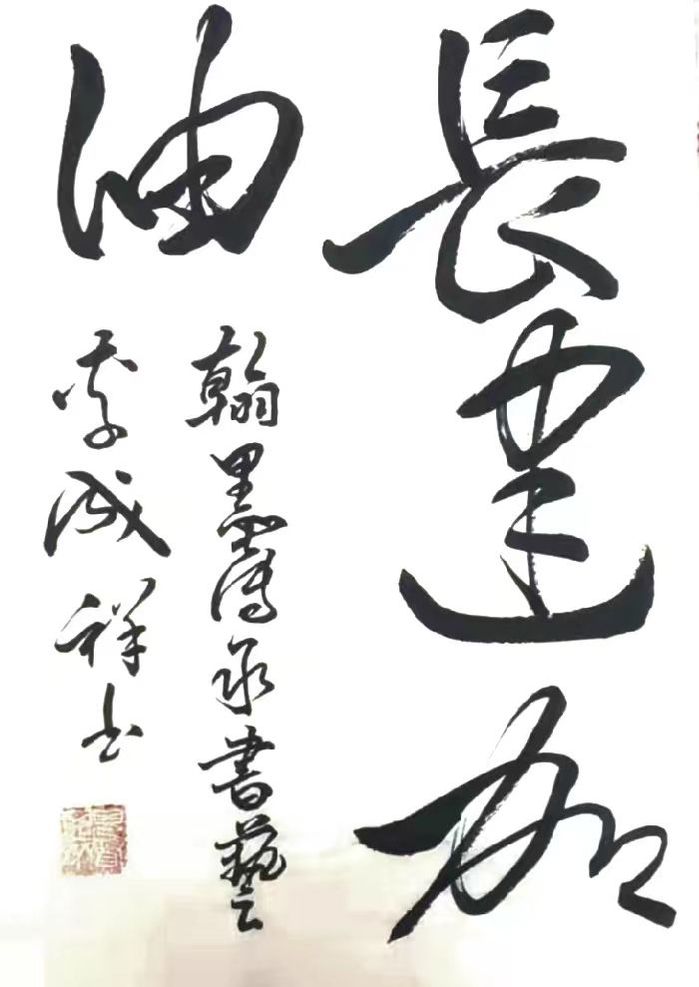 長達加
油
翰墨傳承書藝
李成祥书